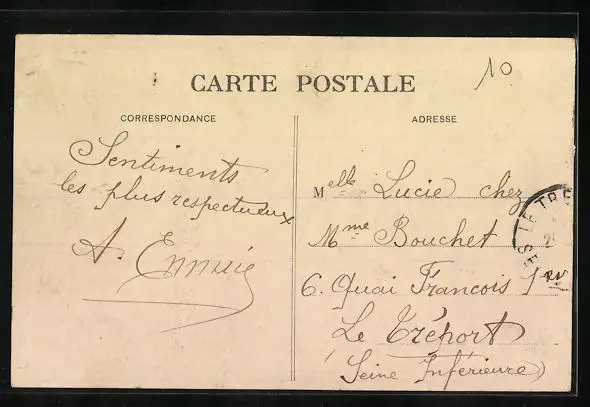 10
CARTE POSTALE
CORRESPONDANCE
ADRESSE
Sentiments
les plus respectueux
A.
Melle Lucie chez
Mme Bouchet
6. Quai François 1er
Le Tréport
(Seine Inférieure)
LE TRE